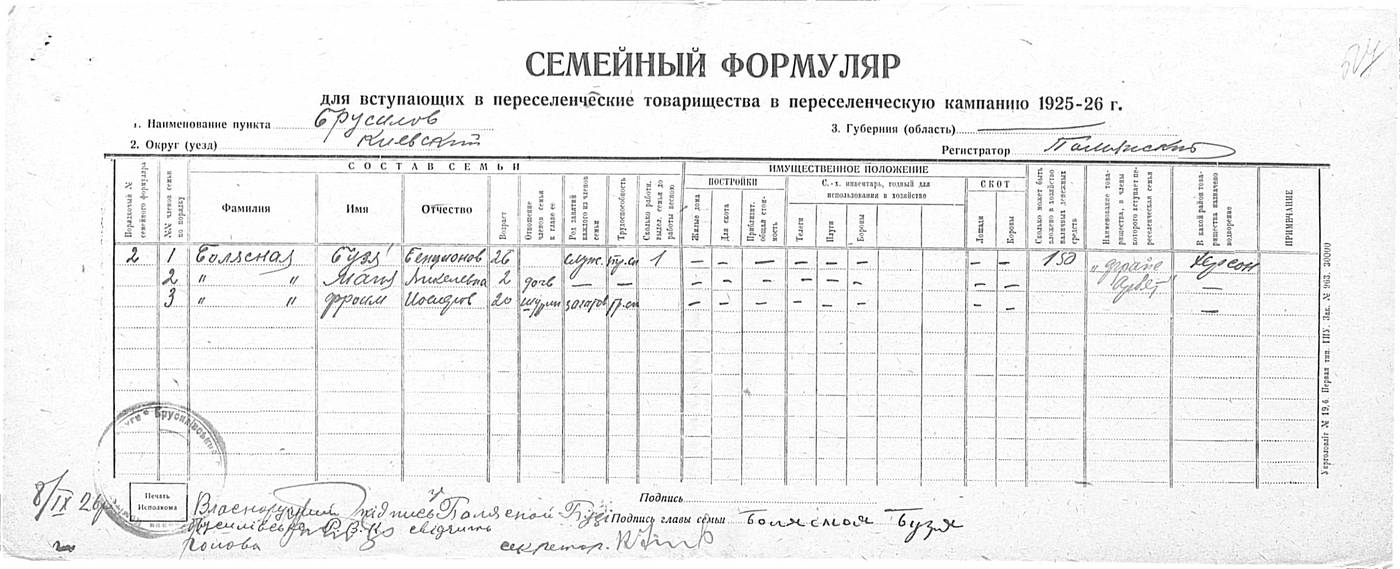 СЕМЕЙНЫЙ ФОРМУЛЯР
для вступающих в переселенческие товарищества в переселенческую кампанию 1925-26 г.
1. Наименование пункта Брусилов
3. Губерния (область)
2. Округ (уезд) Киевский
Регистратор
Порядковый № семейного формуляра
СОСТАВ СЕМЬИ
№№ членов семьи по порядку
Фамилия
Имя
Отчество
Возраст
Отношение членов семьи к главе ее
Род занятий каждого из членов семьи
Трудоспособность
Сколько работн. выдел. семья до работы весною
ИМУЩЕСТВЕННОЕ ПОЛОЖЕНИЕ
ПОСТРОЙКИ
Жилые дома
Для скота
Приблизит. общая стоимость
С.-х. инвентарь, годный для использования в хозяйстве
Телеги
Плуги
Бороны
СКОТ
Лошади
Коровы
Сколько может быть вложено в хозяйство наличных денежных средств
Наименование товарищества, в члены которого вступает переселенческая семья
В какой район товарищества назначено водворение
ПРИМЕЧАНИЕ
2 1 Болясная Бузя Бенционов 26 служ. тр.сп 1 — — — — — 150 Херсон
2 " " Маня 2 дочь — — — — — — — —
3 " " Фроим 20 — — — — — —
Укрголовліт № 19,6. Первая тип. ГПУ. Зак. № 963. 30000
Печать Исполкома
8/IX 26
Власноручний підпис Болясной Бузі
свідчить
голова
секретар.
Подпись
Подпись главы семьи Болясная Бузя